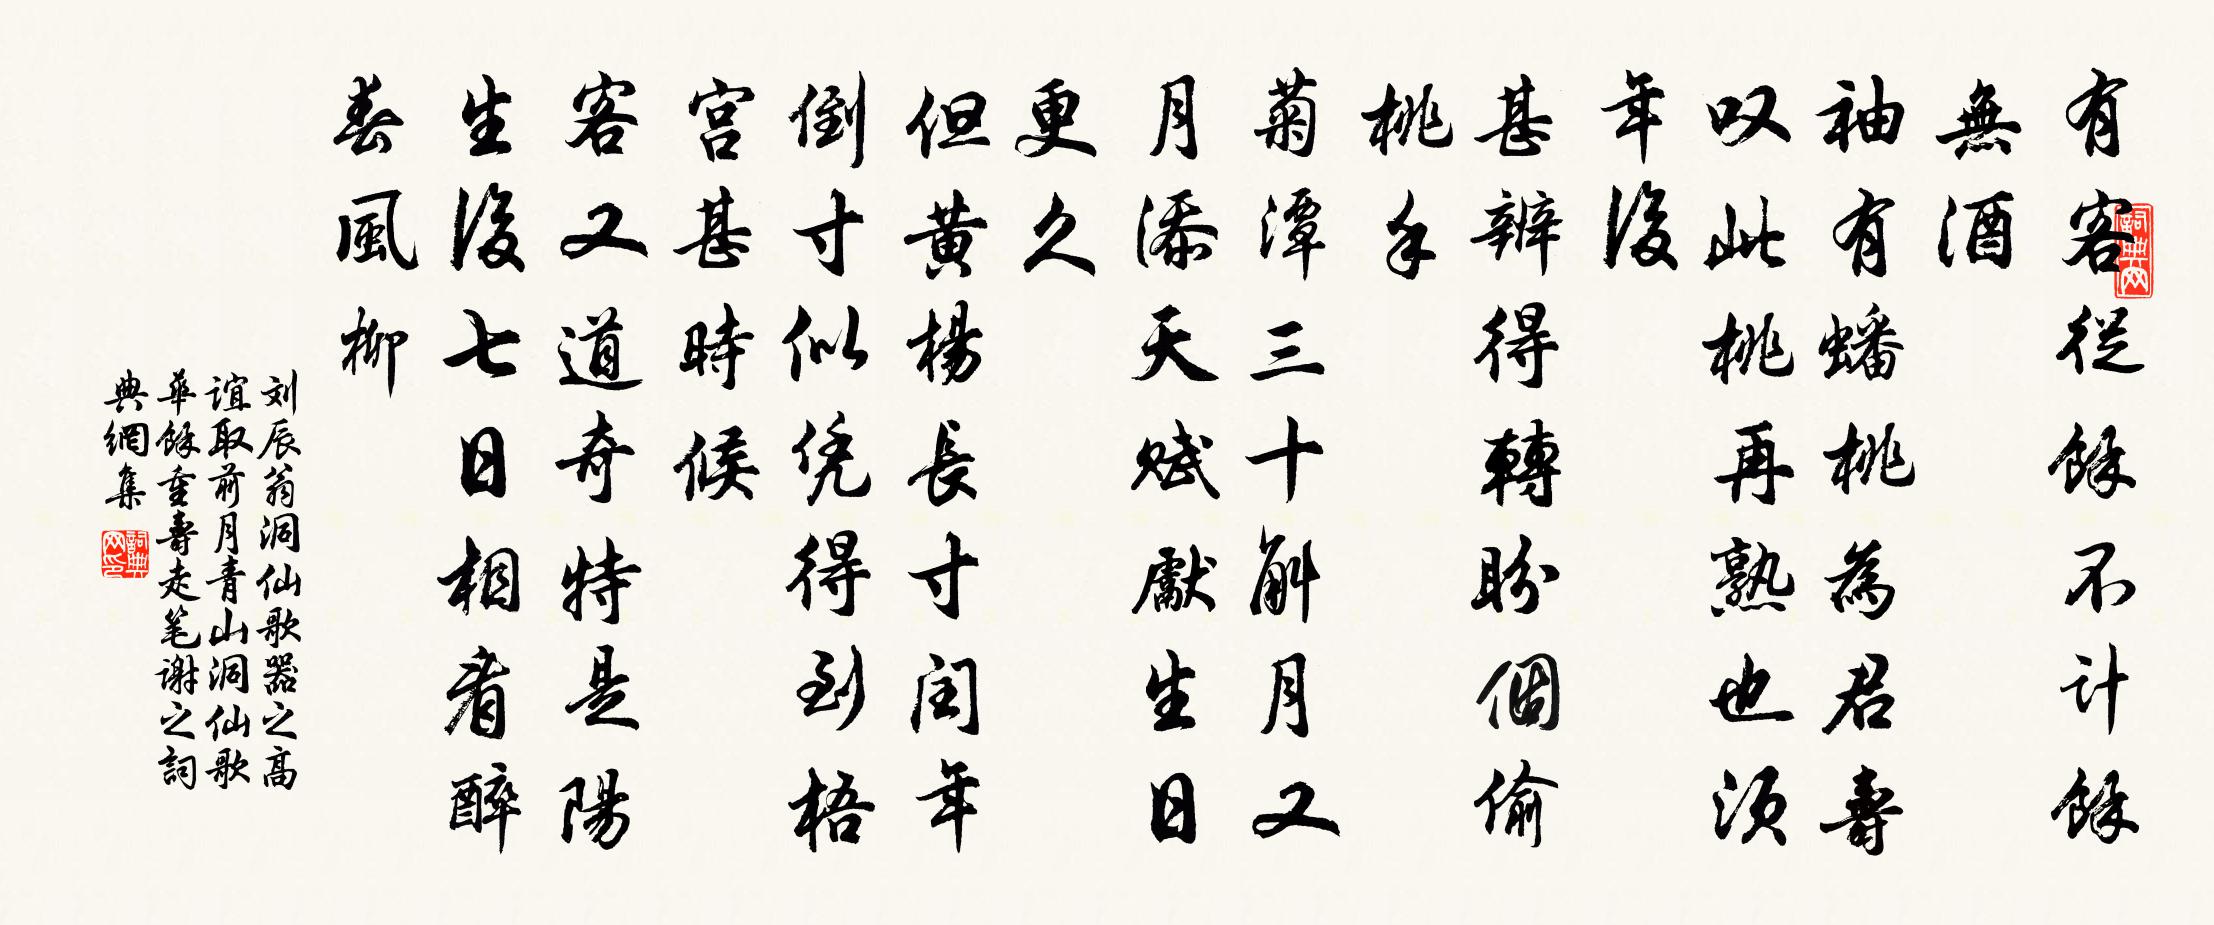 有客從餘不计餘
無酒
袖有蟠桃為君壽
叹此桃再熟也须
年後
甚辨得轉盼個偷
桃手
菊潭三十斛月又
月添天賦獻生日
更久
但黄楊長寸闰年
倒寸似凭得到梧
宫甚時候
客又道奇特是陽
生後七日相看醉
春風柳
刘辰翁洞仙歌器之高
谊取前月青山洞仙歌
華餘重壽走笔谢之詞
典網集
詞典网
詞典网印